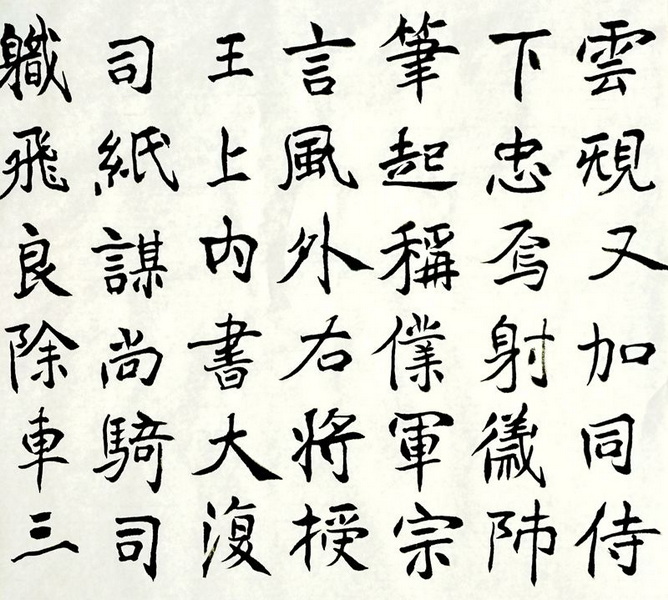 雲覡又加同侍
下忠焉射𢕄師
筆起稱僕軍宗
言風外右將授
王上内書大復
司紙謀尚騎司
職飛良除車三